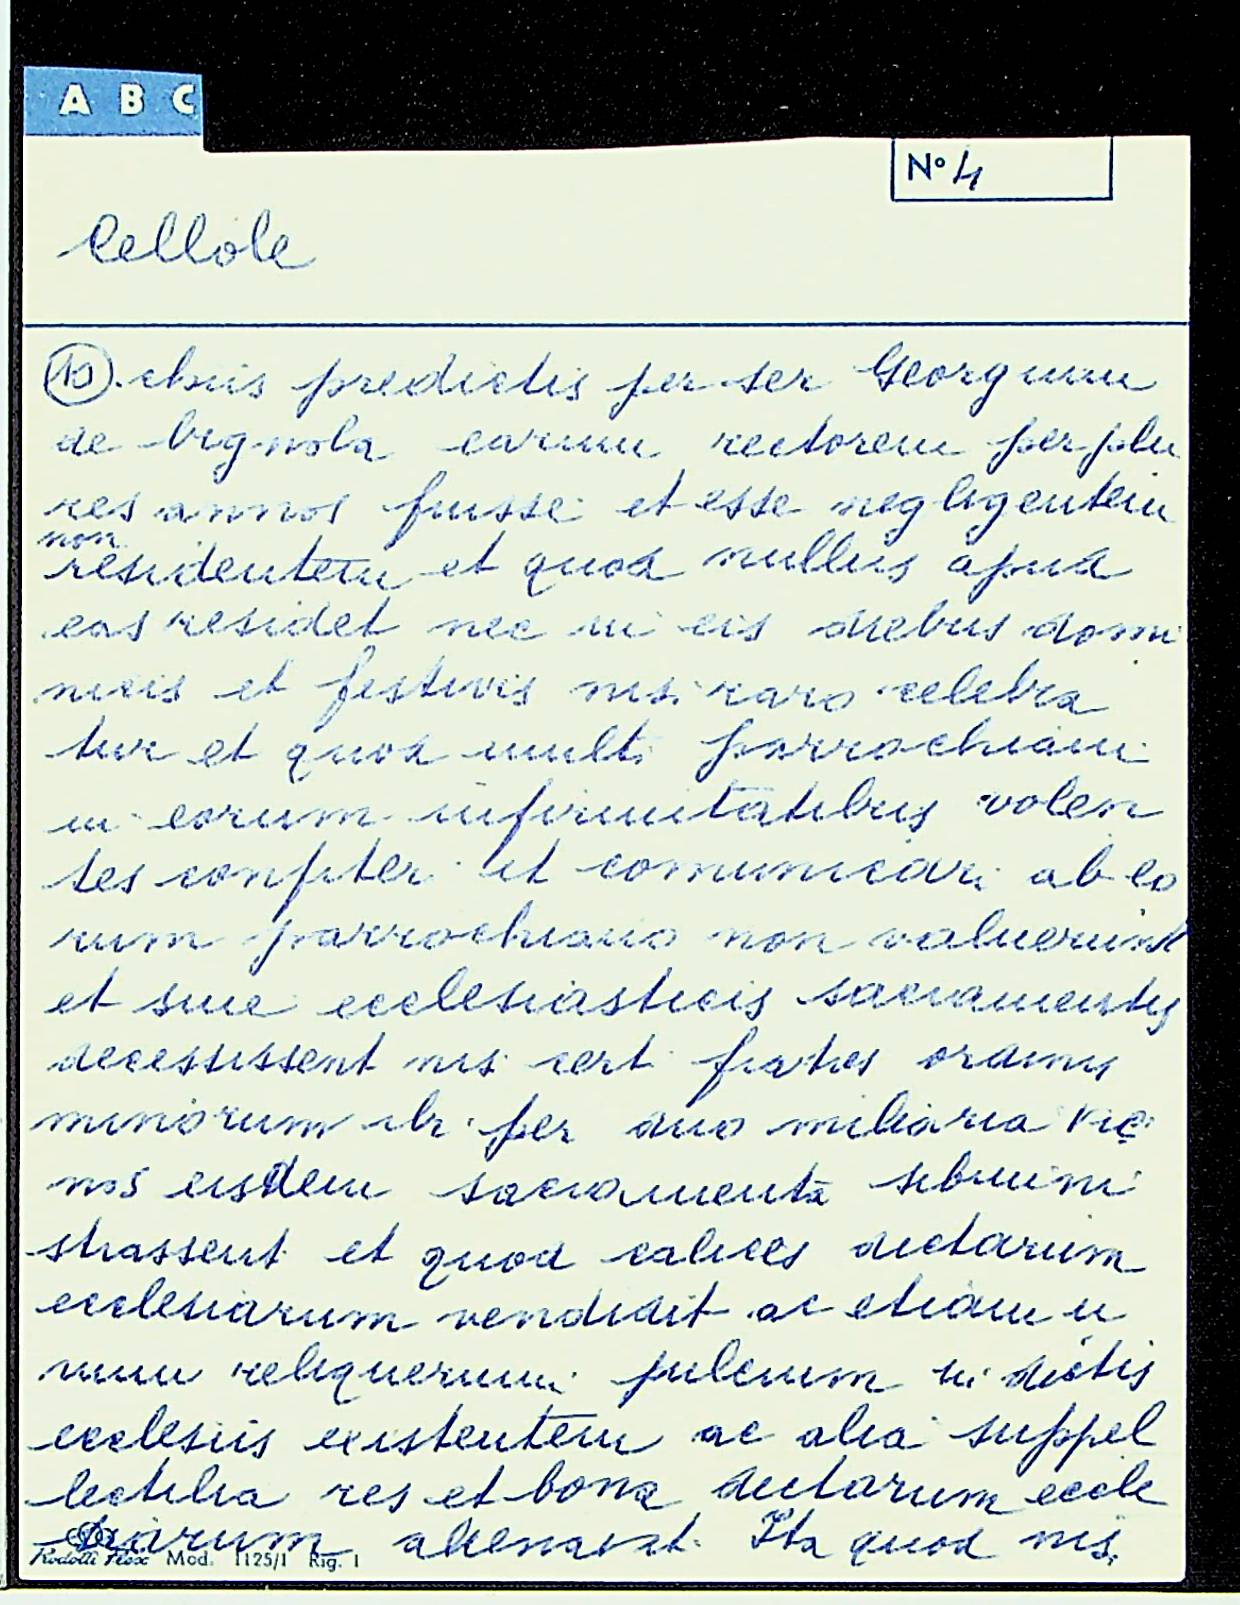 A B C
Nº 4
Cellole
10 . chiis predictis per ser Georgium
de bignola earum rectorem per plu
res annos fuisse et esse negligentem
non
residentem et quod nullus apud
eas residet nec in eis diebus domi
nicis et festivis nisi raro celebra
tur et quod multi parrochiani
in eorum infirmitatibus volen
tes confiteri et comunicari ab eo
rum parrochiano non valuerint
et sine ecclesiasticis sacramentis
decessissent nisi certi fratres ordinis
minorum ibi per duo miliaria vici
nos eisdem sacramenta submini
strassent et quod calices dictarum
ecclesiarum vendidit ac etiam u
num pulcrum in dictis
ecclesiis existentem ac alia suppel
lectilia res et bona dictarum eccle
siarum alienavit. Ita quod nisi
Mod. 1125/1 Rig. 1